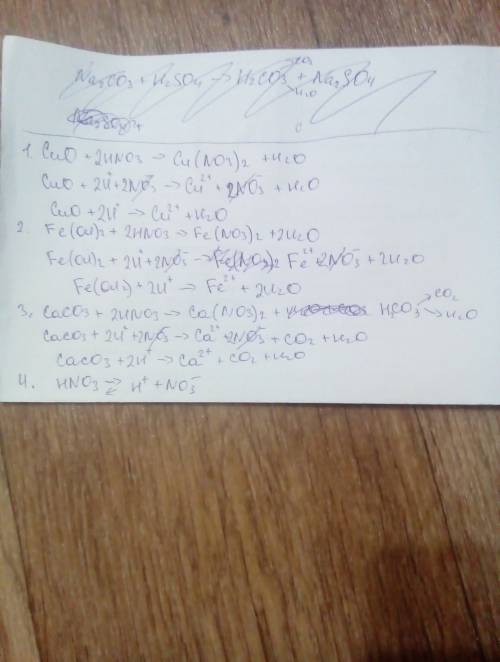 Na₂CO₃ + H₂SO₄ → H₂CO₃ + Na₂SO₄
CO₂
H₂O
1. CuO + 2HNO₃ → Cu(NO₃)₂ + H₂O
CuO + 2H⁺ + 2NO₃⁻ → Cu²⁺ + 2NO₃⁻ + H₂O
CuO + 2H⁺ → Cu²⁺ + H₂O
2. Fe(OH)₂ + 2HNO₃ → Fe(NO₃)₂ + 2H₂O
Fe(OH)₂ + 2H⁺ + 2NO₃⁻ → Fe(NO₃)₂ Fe²⁺ 2NO₃⁻ + 2H₂O
Fe(OH)₂ + 2H⁺ → Fe²⁺ + 2H₂O
3. CaCO₃ + 2HNO₃ → Ca(NO₃)₂ + H₂CO₃ CO₂ H₂O
CaCO₃ + 2H⁺ + 2NO₃⁻ → Ca²⁺ 2NO₃⁻ + CO₂ + H₂O
CaCO₃ + 2H⁺ → Ca²⁺ + CO₂ + H₂O
4. HNO₃ ⇄ H⁺ + NO₃⁻